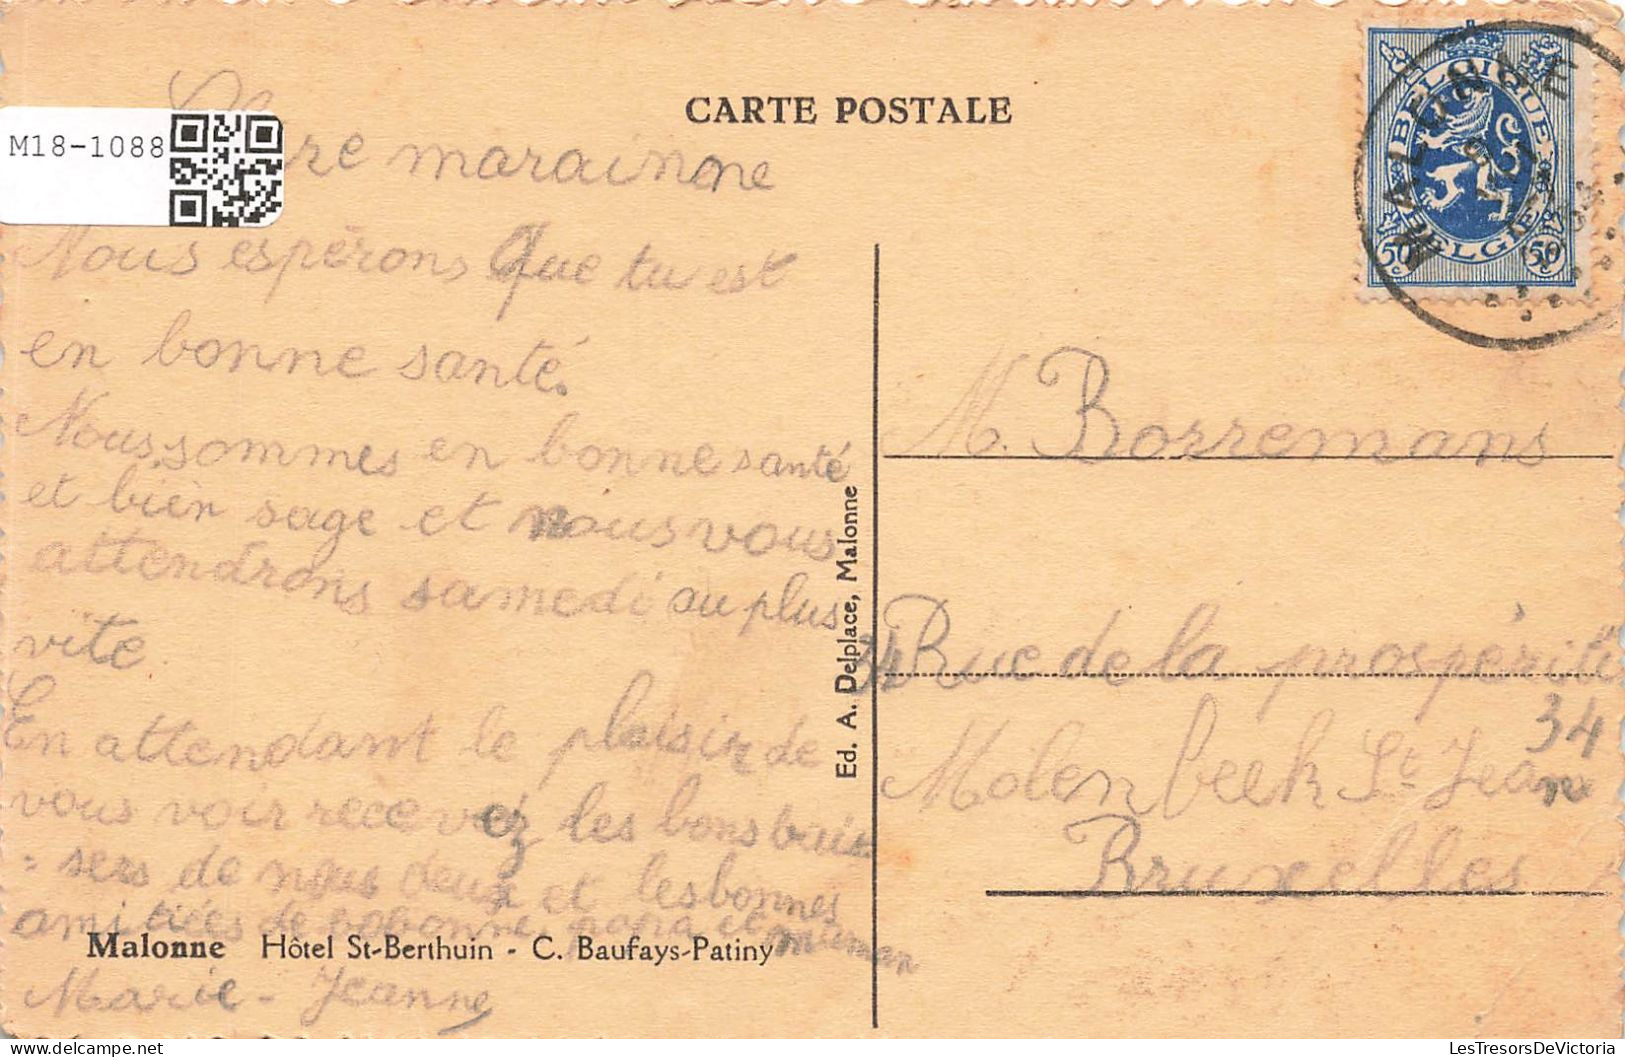 CARTE POSTALE
M18-1088
BELGIQUE
BELGIE
50c
50c
MALONNE
marainne
Nous espérons Que tu est
en bonne santé.
Nous sommes en bonne santé
et bien sage et nous vous
attendrons samedi au plus
vite
En attendant le plaisir de
vous voir recevez les bons bai
=sers de nous deux et les bonnes
amitiées de bobonne, papa et maman
Malonne Hôtel St-Berthuin - C. Baufays-Patiny
Marie-Jeanne
Ed. A. Delplace, Malonne
M. Borremans
34 Rue de la prospérité
34
Molenbeek St Jean
Bruxelles
LesTresorsDeVictoria